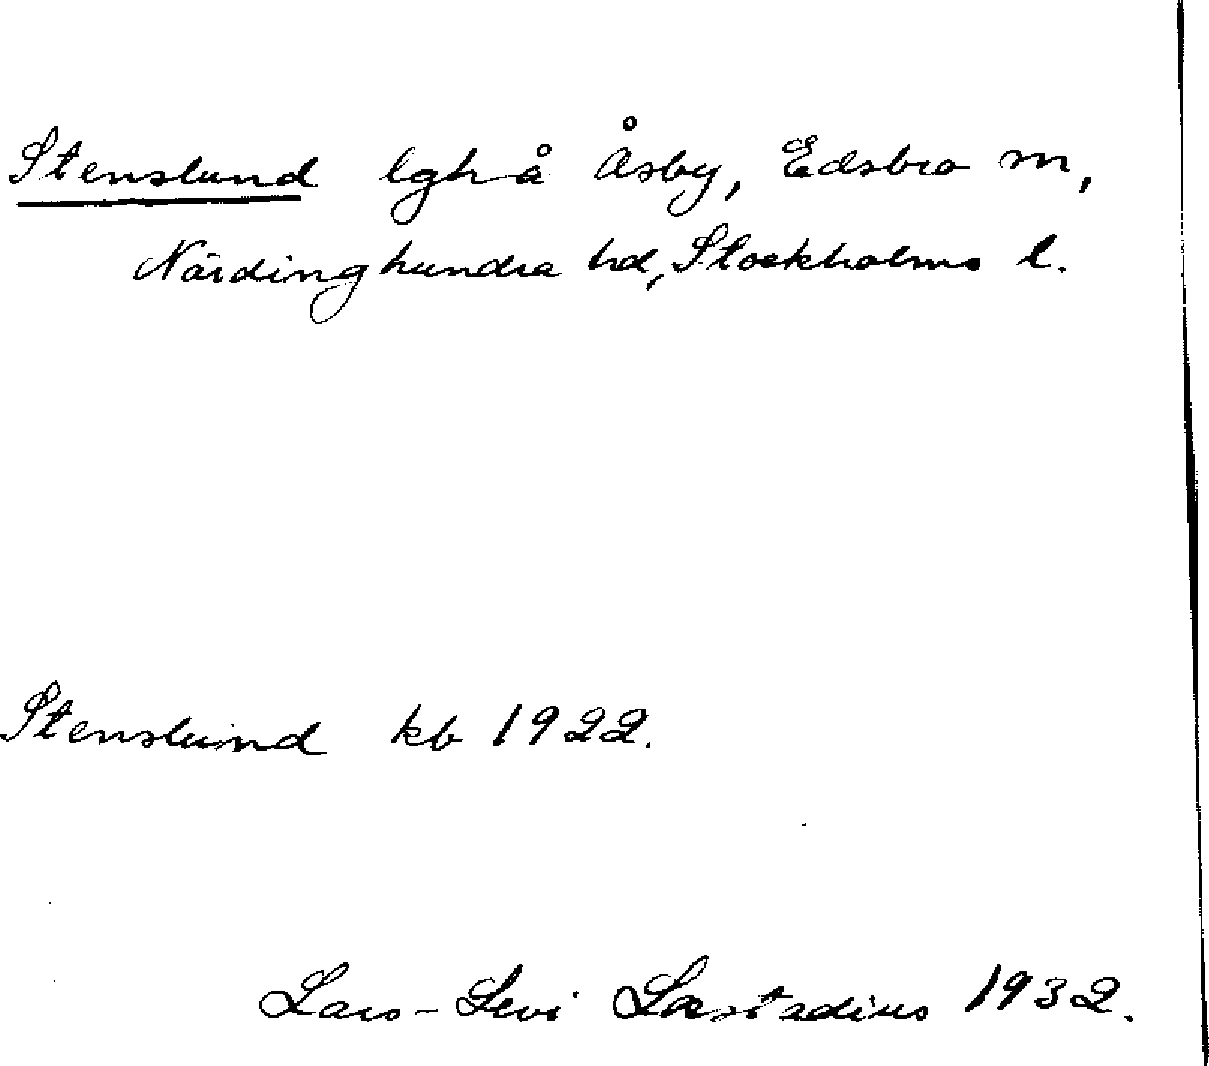 Stenslund lgh å Åsby, Edsbro sn,
Närdinghundra hd, Stockholms l.
Stenslund kb 1922.
Lars-Levi Læstadius 1932.